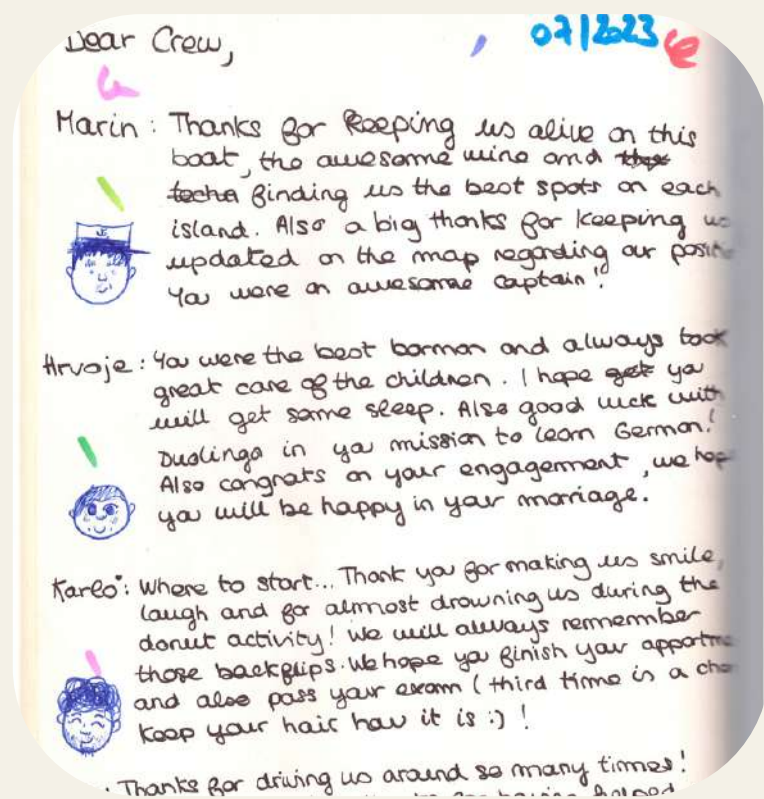 Dear Crew,
07/2023
Marin: Thanks for keeping us alive on this
boat, the awesome wine and
finding us the best spots on each
island. Also a big thanks for keeping us
updated on the map regarding our
You were an awesome captain!
Hrvoje: You were the best barman and always took
great care of the children. I hope get you
will get some sleep. Also good luck with
Duolingo in you mission to learn German!
Also congrats on your engagement, we hope
you will be happy in your marriage.
Karlo: Where to start... Thank you for making us smile,
laugh and for almost drowning us during the
donut activity! We will always remember
those backflips. We hope you finish your
and also pass your exam (third time is a
keep your hair how it is :) !
Thanks for driving us around so many times!
for having helped